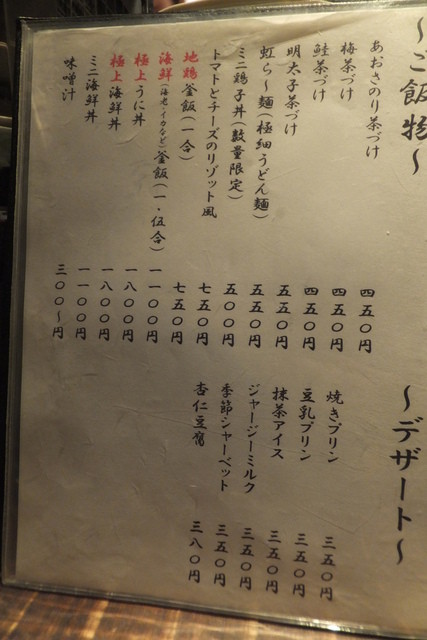 ～ご飯物～
あおさのり茶づけ 四五〇円
梅茶づけ 四五〇円
鮭茶づけ 四五〇円
明太子茶づけ 五五〇円
虹ら～麺(極細うどん麺) 五五〇円
ミニ鶏子丼(数量限定) 五〇〇円
トマトとチーズのリゾット風 七五〇円
地鶏釜飯(一合) 七五〇円
海鮮(海老・イカなど)釜飯(一・伍合) 一一〇〇円
極上うに丼 一八〇〇円
極上海鮮丼 一八〇〇円
ミニ海鮮丼 一一〇〇円
味噌汁 三〇〇～円
～デザート～
焼きプリン 三五〇円
豆乳プリン 三五〇円
抹茶アイス 三五〇円
ジャージーミルク 三五〇円
季節シャーベット 三五〇円
杏仁豆腐 三八〇円